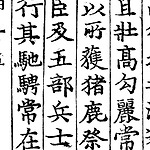 且壯高勾麗常
以所獲猪鹿祭
臣及五部兵士
行其馳騁常在